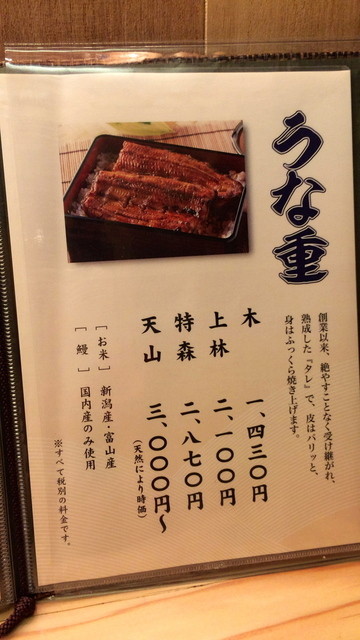 うな重
創業以来、絶やすことなく受け継がれ、
熟成した『タレ』で、皮はパリッと、
身はふっくら焼き上げます。
木 一、四三〇円
上林 二、一〇〇円
特森 二、八七〇円
天山 三、〇〇〇円～
(天然により時価)
[お米] 新潟産・富山産
[鰻] 国内産のみ使用
※すべて税別の料金です。